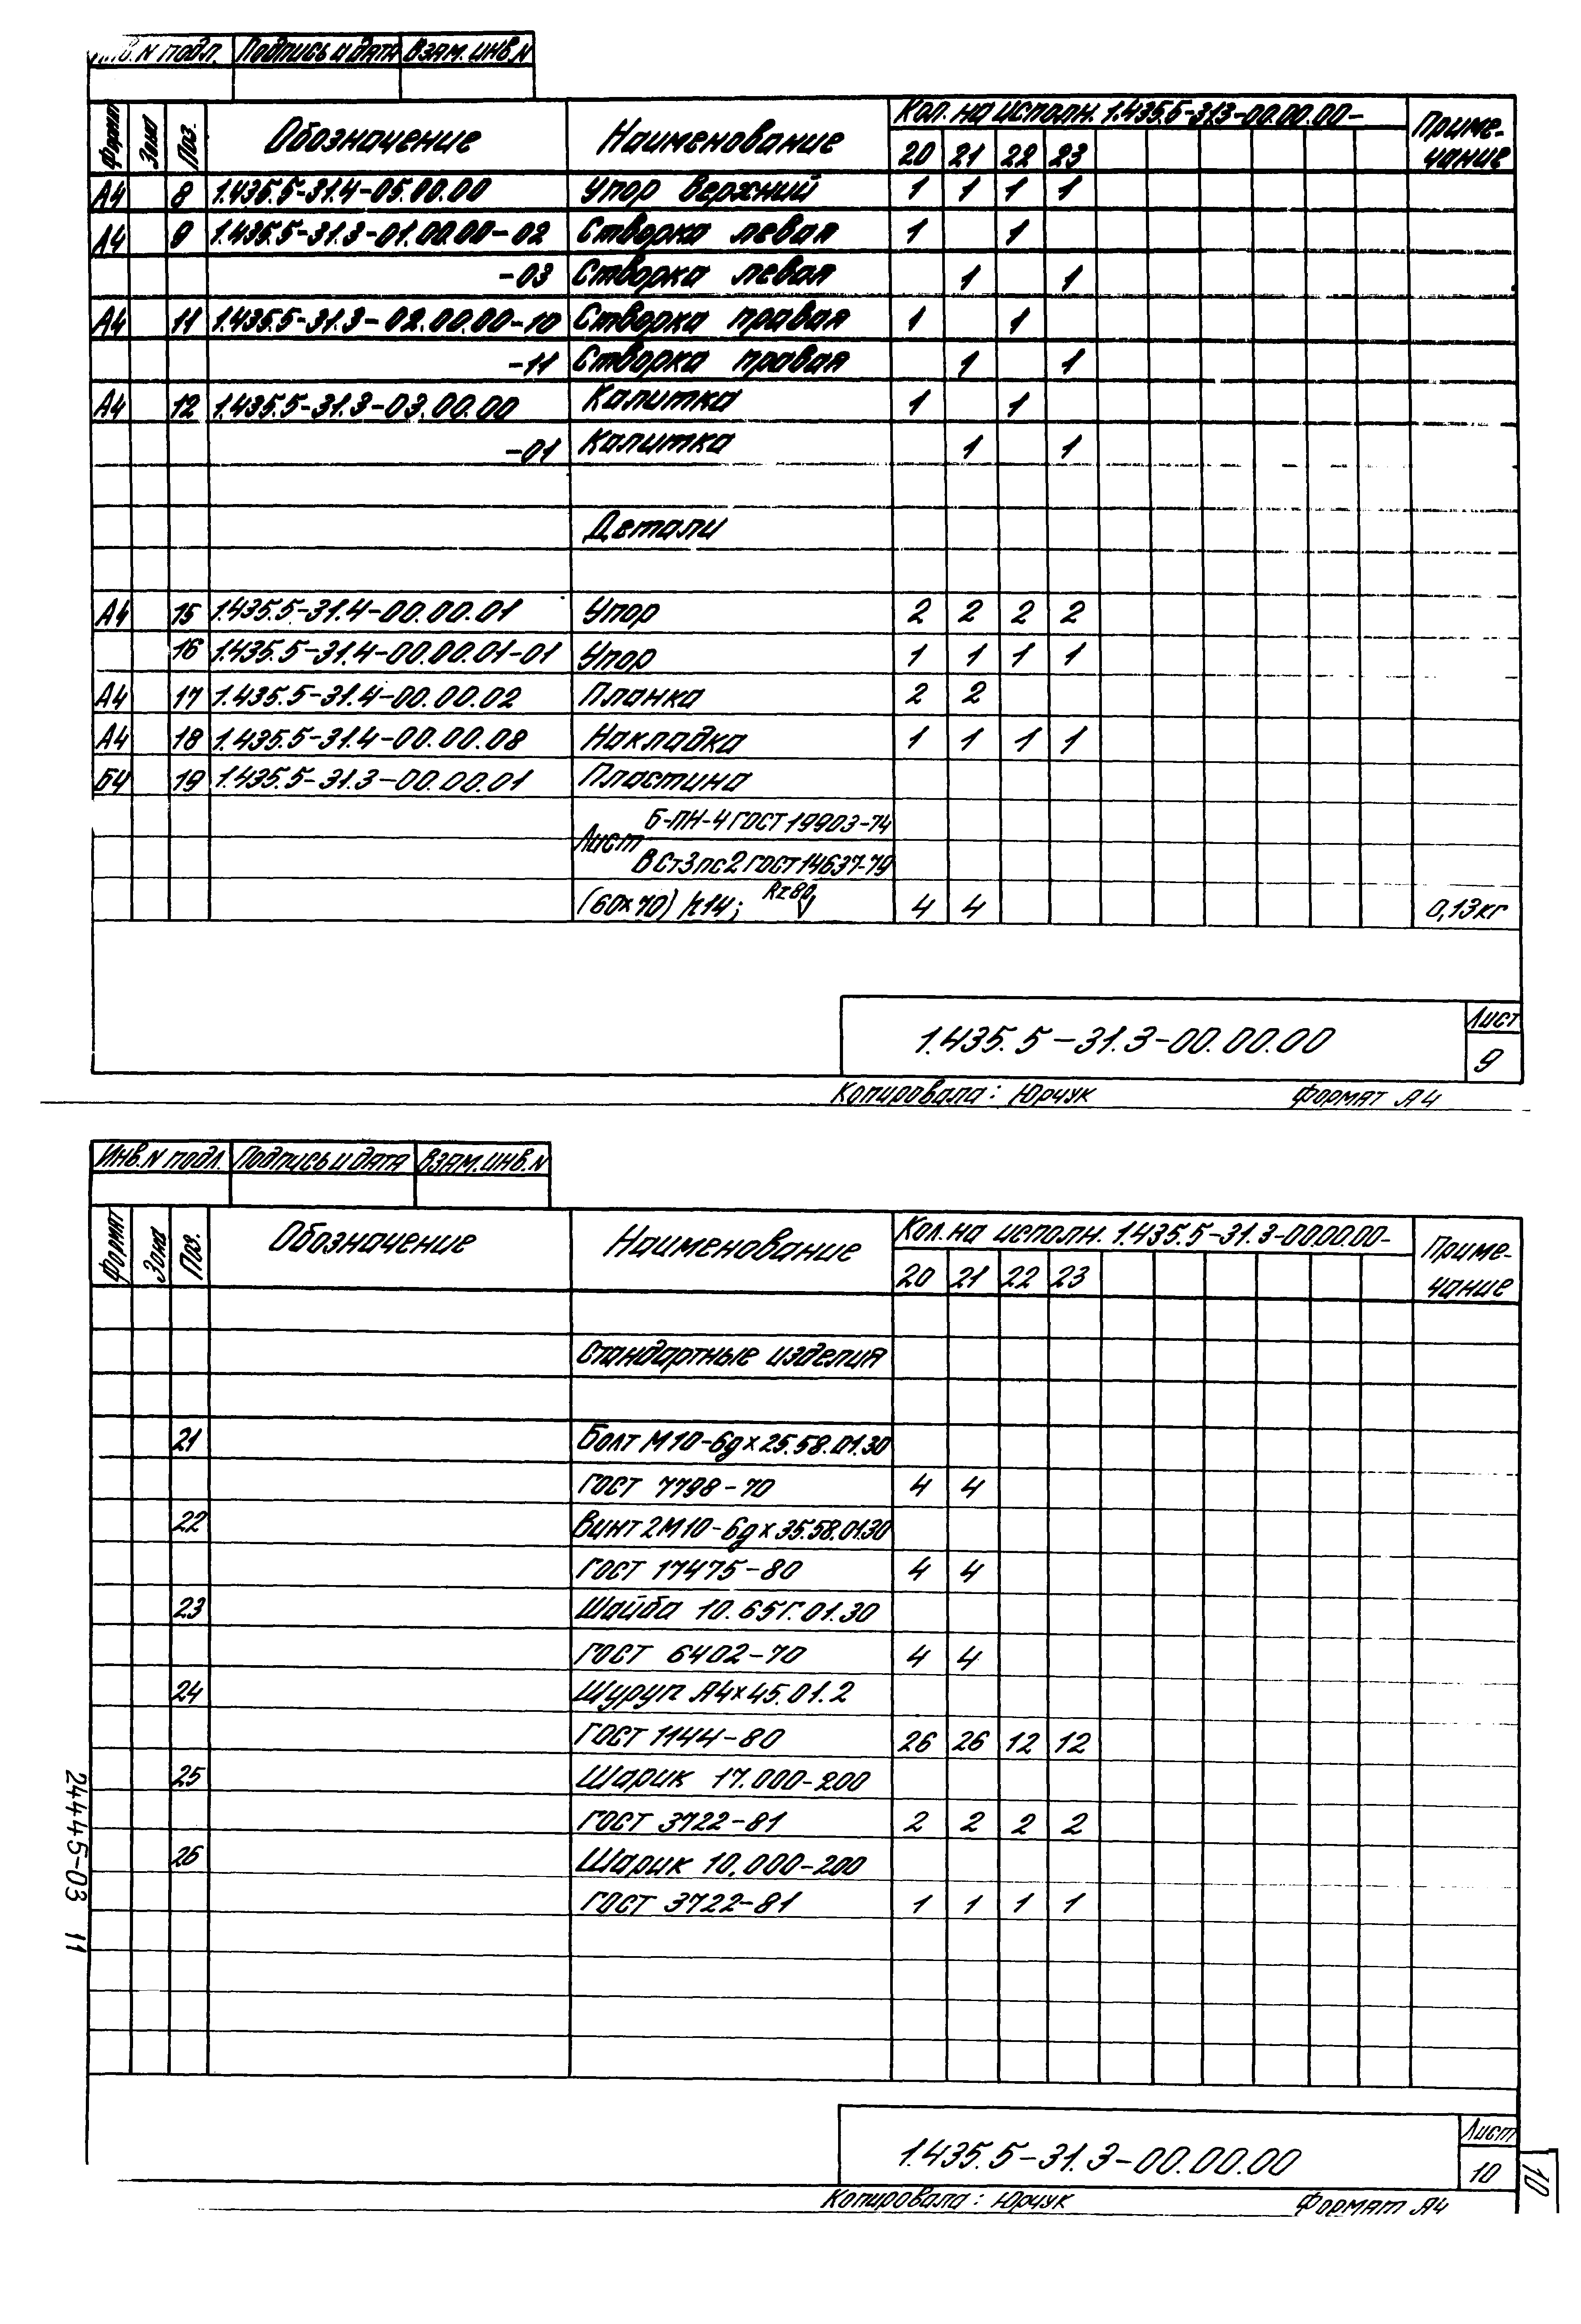 Инв.N подл. Подпись и дата Взам. инв.N
Формат Зона Поз. Обозначение Наименование Кол. на исполн. 1.435.5-31.3-00.00.00- Приме-
20 21 22 23 чание
А4 8 1.435.5-31.4-05.00.00 Упор верхний 1 1 1 1
А4 9 1.435.5-31.3-01.00.00-02 Створка левая 1 1
-03 Створка левая 1 1
А4 11 1.435.5-31.3-02.00.00-10 Створка правая 1 1
-11 Створка правая 1 1
А4 12 1.435.5-31.3-03.00.00 Калитка 1 1
-01 Калитка 1 1
Детали
А4 15 1.435.5-31.4-00.00.01 Упор 2 2 2 2
16 1.435.5-31.4-00.00.01-01 Упор 1 1 1 1
А4 17 1.435.5-31.4-00.00.02 Планка 2 2
А4 18 1.435.5-31.4-00.00.08 Накладка 1 1 1 1
Б4 19 1.435.5-31.3-00.00.01 Пластина
Б-ПН-4 ГОСТ 19903-74
Лист
ВСт3пс2 ГОСТ 14637-79
(60×70) h14; Rz80 4 4 0,13кг
1.435.5-31.3-00.00.00 Лист
9
Копировала: Юрчук Формат А4
Инв.N подл. Подпись и дата Взам. инв.N
Формат Зона Поз. Обозначение Наименование Кол. на исполн. 1.435.5-31.3-00.00.00- Приме-
20 21 22 23 чание
Стандартные изделия
21 Болт М10-6g×25.58.01.30
ГОСТ 7798-70 4 4
22 Винт 2М10-6g×35.58.01.30
ГОСТ 17475-80 4 4
23 Шайба 10.65Г.01.30
ГОСТ 6402-70 4 4
24 Шуруп А4×45.01.2
ГОСТ 1144-80 26 26 12 12
25 Шарик 17.000-200
ГОСТ 3722-81 2 2 2 2
26 Шарик 10.000-200
ГОСТ 3722-81 1 1 1 1
24445-03 11
1.435.5-31.3-00.00.00 Лист
10
10
Копировала: Юрчук Формат А4